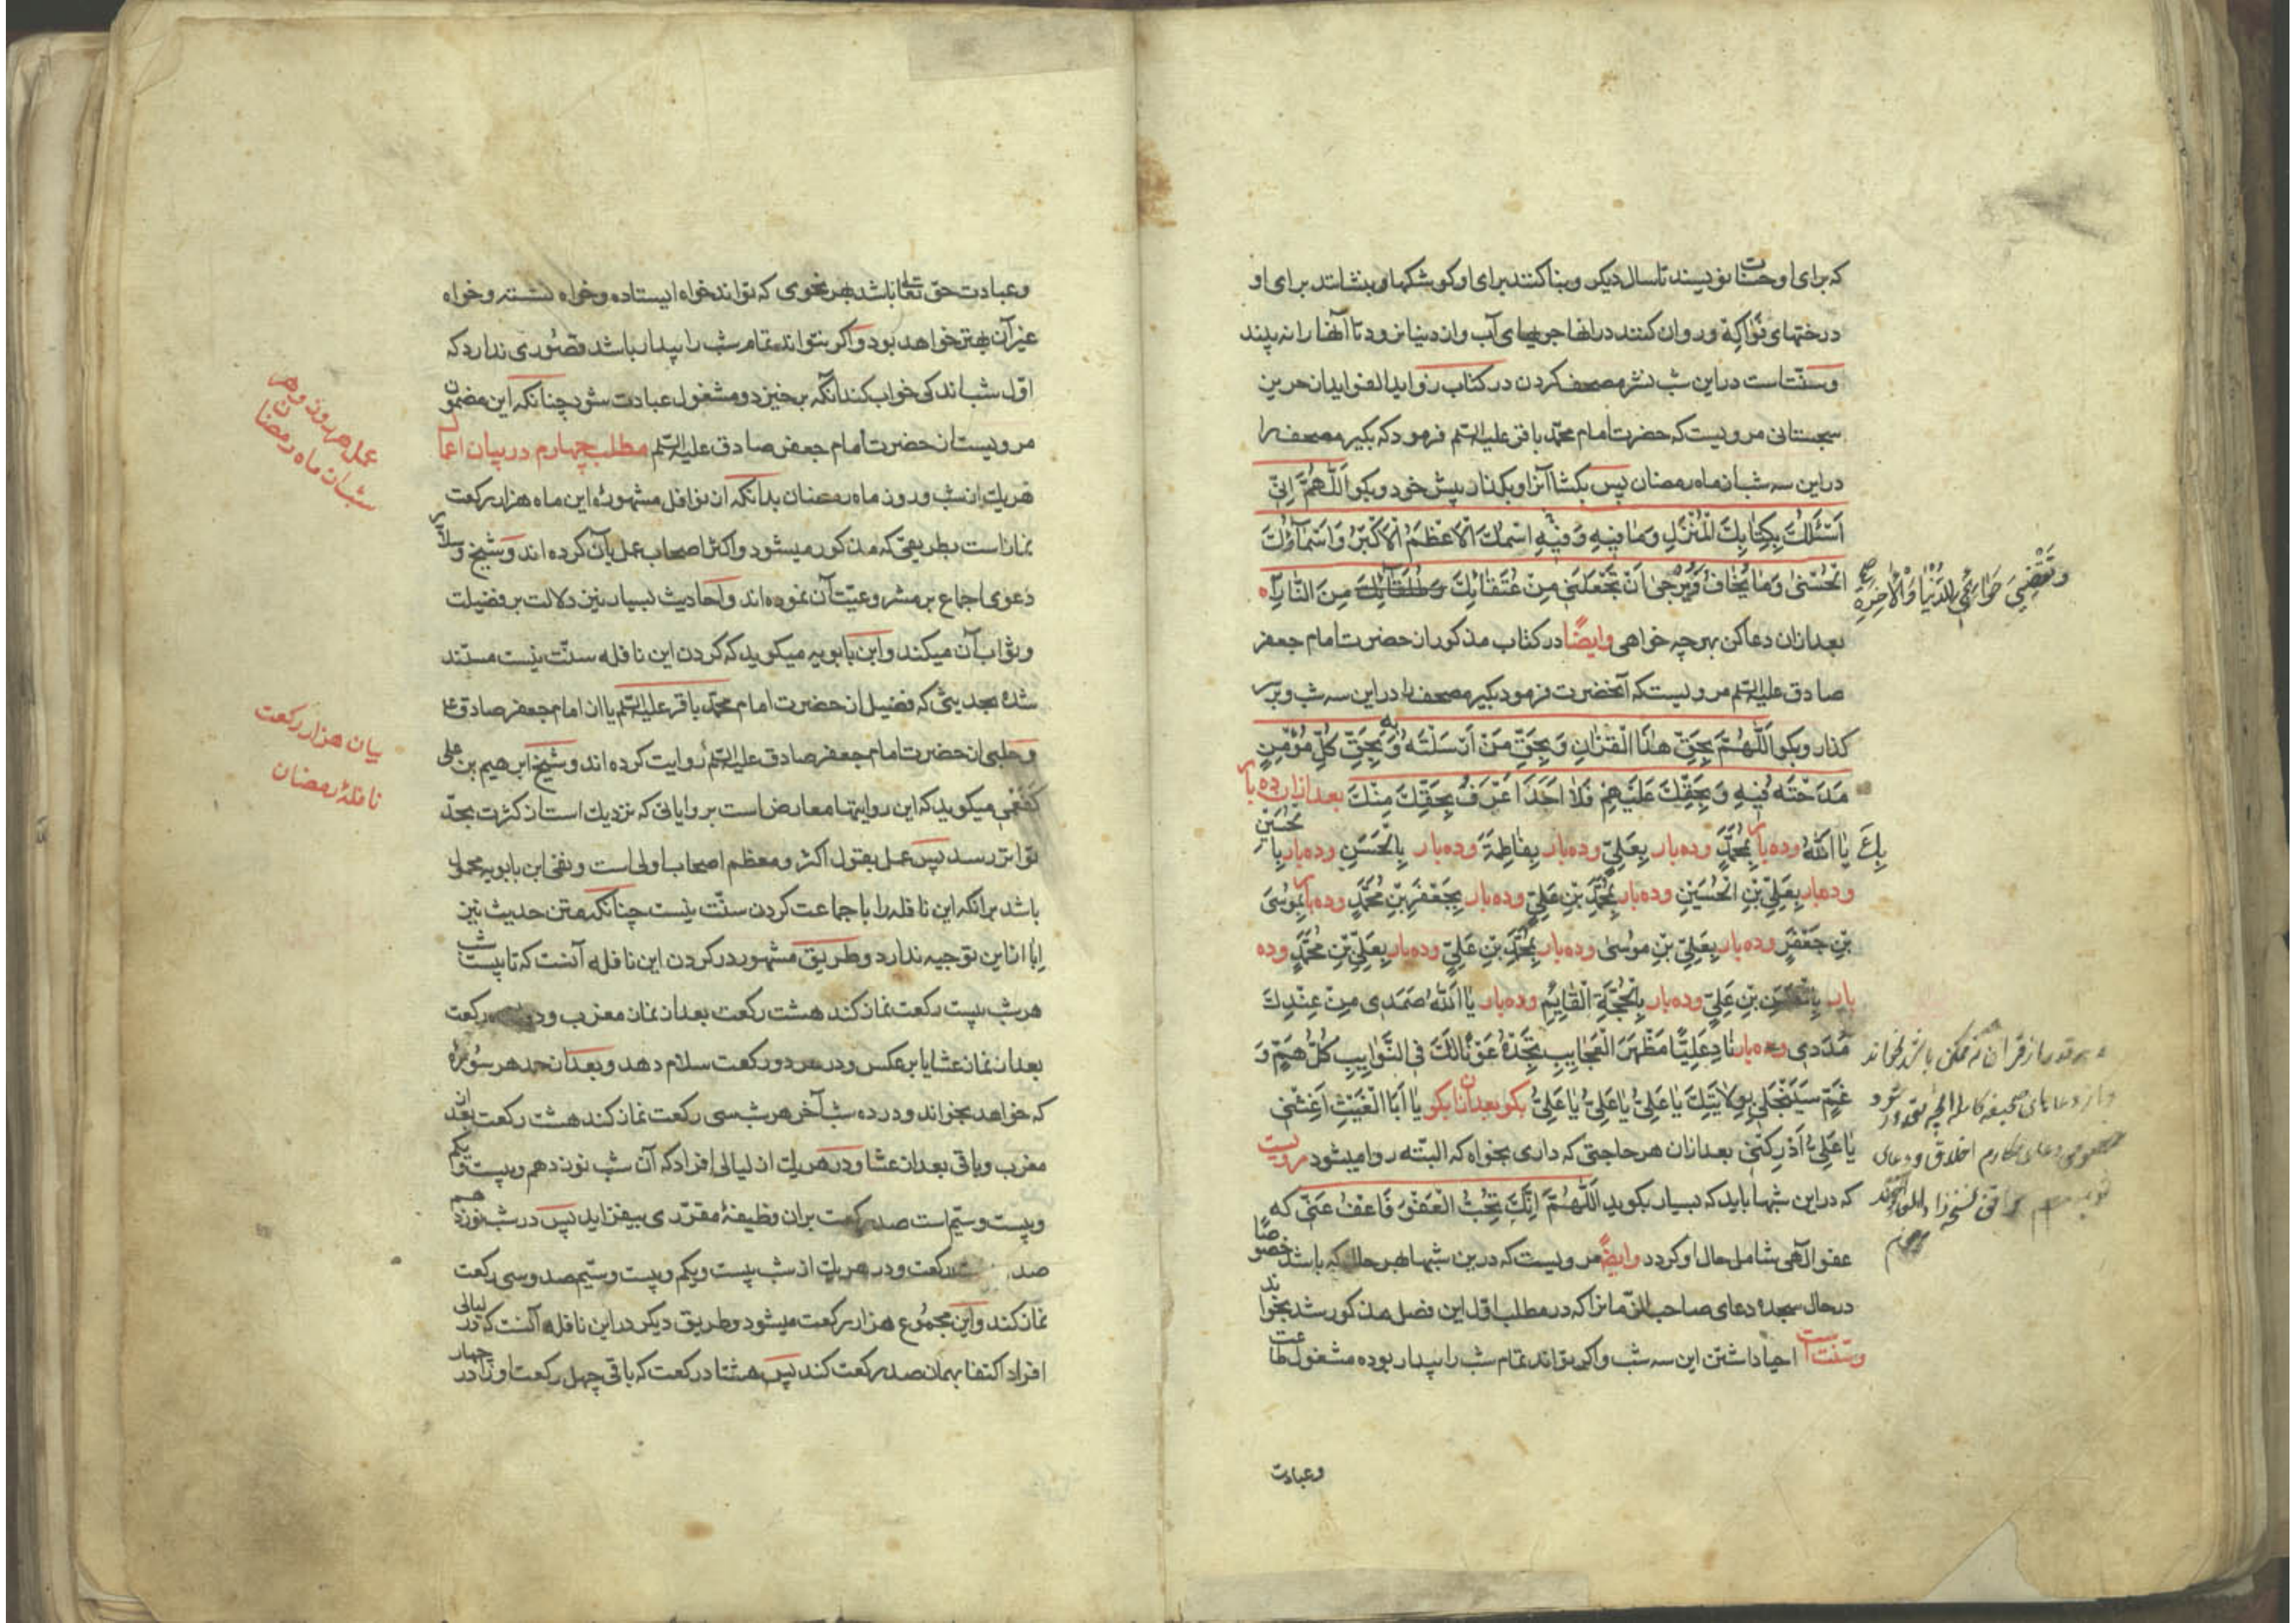 که برای او حسنات نویسند تا سال دیگر و بنا کنند برای او کوشکها و بنشانند برای او
درختهای فواکه و روان کنند در انها جویهای آب و از دنیا نرود تا آنها را نه بیند
و سنّتست در این شب نشر مصحف کردن در کتاب زواید الفواید از حریز
سجستانی مرویست که حضرت امام محمّد باقر علیه السّلم فرمود که بگیر مصحف را
در این سه شب از ماه رمضان پس بگشا آنرا و بگذار پیش خود و بگو اَللّٰهُمَّ اِنّی
اَسْئَلُكَ بِكِتٰابِكَ الْمُنْزَلِ وَمٰا فیهِ وَفیهِ اسْمُكَ الْاَعْظَمُ الْاَكْبَرُ وَاَسْمٰآؤُكَ
الْحُسْنیٰ وَمٰا یُخٰافُ وَیُرْجیٰ اَنْ تَجْعَلَنی مِنْ عُتَقٰائِكَ وَطُلَقٰائِكَ مِنَ النّٰارِ
وَتَقْضِیَ حَوٰائِجی لِلدُّنْیٰا وَالْاٰخِرَةِ صح
بعد ازان دعا کن بهرچه خواهی وایضًا در کتاب مذکور از حضرت امام جعفر
صادق علیه السّلم مرویست که آنحضرت فرمود بگیر مصحف را در این سه شب و بر سر
گذار و بگو اَللّٰهُمَّ بِحَقِّ هٰذَا الْقُرْاٰنِ وَبِحَقِّ مَنْ اَرْسَلْتَهُ بِهِ وَبِحَقِّ كُلِّ مُؤْمِنٍ
مَدَحْتَهُ فیهِ وَبِحَقِّكَ عَلَیْهِمْ فَلاٰ اَحَدَ اَعْرَفُ بِحَقِّكَ مِنْكَ بعد ازان ده بار
بِكَ یٰا اَللّٰهُ وده بار بِمُحَمَّدٍ وده بار بِعَلِیٍّ وده بار بِفٰاطِمَةَ وده بار بِالْحَسَنِ وده بار بِالْحُسَیْنِ
وده بار بِعَلِیِّ بْنِ الْحُسَیْنِ وده بار بِمُحَمَّدِ بْنِ عَلِیٍّ وده بار بِجَعْفَرِ بْنِ مُحَمَّدٍ وده بار بِمُوسَی
بْنِ جَعْفَرٍ وده بار بِعَلِیِّ بْنِ مُوسیٰ وده بار بِمُحَمَّدِ بْنِ عَلِیٍّ وده بار بِعَلِیِّ بْنِ مُحَمَّدٍ وده
بار بِالْحَسَنِ بْنِ عَلِیٍّ وده بار بِالْحُجَّةِ الْقٰایِمِ وده بار یٰا اَللّٰهُ صَمَدی مِنْ عِنْدِكَ
مَدَدی وده بار نٰادِ عَلِیًّا مَظْهَرَ الْعَجٰایِبِ تَجِدْهُ عَوْنًا لَكَ فِی النَّوٰایِبِ كُلُّ هَمٍّ وَ
غَمٍّ سَیَنْجَلی بِوِلاٰیَتِكَ یٰا عَلِیُّ یٰا عَلِیُّ یٰا عَلِیُّ بگو بعد ازان بگو یٰا اَبَا الْغَیْثِ اَغِثْنی
یٰا عَلِیُّ اَدْرِكْنی بعد ازان هر حاجتی که داری بخواه که البتّه روا میشود مرویست
که در این شبها باید که بسیار بگوید اَللّٰهُمَّ اِنَّكَ تُحِبُّ الْعَفْوَ فَاعْفُ عَنّی که
عفو الٓهی شامل حال او گردد وایضًا مرویست که درین شبها بهر حال که باشد خصوصًا
در حال سجده دعای صاحب الزّمانرا که در مطلب اوّل این فصل مذکور شد بخواند
و سنّت است احیا داشتن این سه شب و اگر بتواند تمام شب را بیدار بوده مشغول طاعت
و هر قدر از قران که ممکن باشد بخواند
و از دعاهای صحیفه کامله آنچه مقدور شود
خصوص دعای مکارم اخلاق و دعای
توبه موافق نسخه زاد المعاد بخواند
وعبادت
و عبادت حقّ تعالی باشد بهر نحوی که تواند خواه ایستاده و خواه نشسته و خواه
غیر آن بهتر خواهد بود و اگر نتواند تمام شب را بیدار باشد قصوری ندارد که
اوّل شب اندکی خواب کند آنگه برخیزد و مشغول عبادت شود چنانکه این مضمون
مرویست از حضرت امام جعفر صادق علیه السّلم مطلب چهارم در بیان اعمال
هر یك از شب و روز ماه رمضان بدانکه از نوافل مشهورۀ این ماه هزار رکعت
نماز است بطریقی که مذکور میشود و اکثر اصحاب عمل بآن کرده اند و شیخ و سلار
دعوی اجماع بر مشروعیّت آن نموده اند و احادیث بسیار نیز دلالت بر فضیلت
و ثواب آن میکند و ابن بابویه میگوید که کردن این نافله سنّت نیست مستند
شده بحدیثی که فضیل از حضرت امام محمّد باقر علیه السّلم یا از امام جعفر صادق ع
و حلبی از حضرت امام جعفر صادق علیه السّلم روایت کرده اند و شیخ ابرهیم بن علی
کفعمی میگوید که این روایتها معارض است بروایاتی که نزدیك است از کثرت بحدّ
تواتر رسد پس عمل بقول اکثر و معظم اصحاب اولی است و نفی ابن بابویه محمول
باشد برانکه این نافله را با جماعت کردن سنّت نیست چنانکه متن حدیث نیز
اِبا از این توجیه ندارد و طریق مشهور در کردن این نافله آنست که تا بیست شب
هر شب بیست رکعت نماز کند هشت رکعت بعد از نماز مغرب و رکعت
بعد از نماز عشا یا برعکس و در هر دو رکعت سلام دهد و بعد از حمد هر سورۀ
که خواهد بخواند و در ده شب آخر هر شب سی رکعت نماز کند هشت رکعت بعد از
مغرب و باقی بعد از عشا و در هر یك از لیالی افراد که آن شب نوزدهم و بیست و یکم
و بیست و سیّم است صد رکعت بران وظیفۀ مقرّری بیفزاید پس در شب نوزدهم
صد رکعت و در هر یك از شب بیست و یکم و بیست و سیّم صد و سی رکعت
نماز کند و این مجموع هزار رکعت میشود و طریق دیگر در این نافله آنست که در لیالی
افراد اکتفا بهمان صد رکعت کند پس هشتاد رکعت که باقی چهل رکعت او را در چهار
عمل هر روز و هر
شب از ماه رمضان
بیان هزار رکعت
نافلۀ رمضان